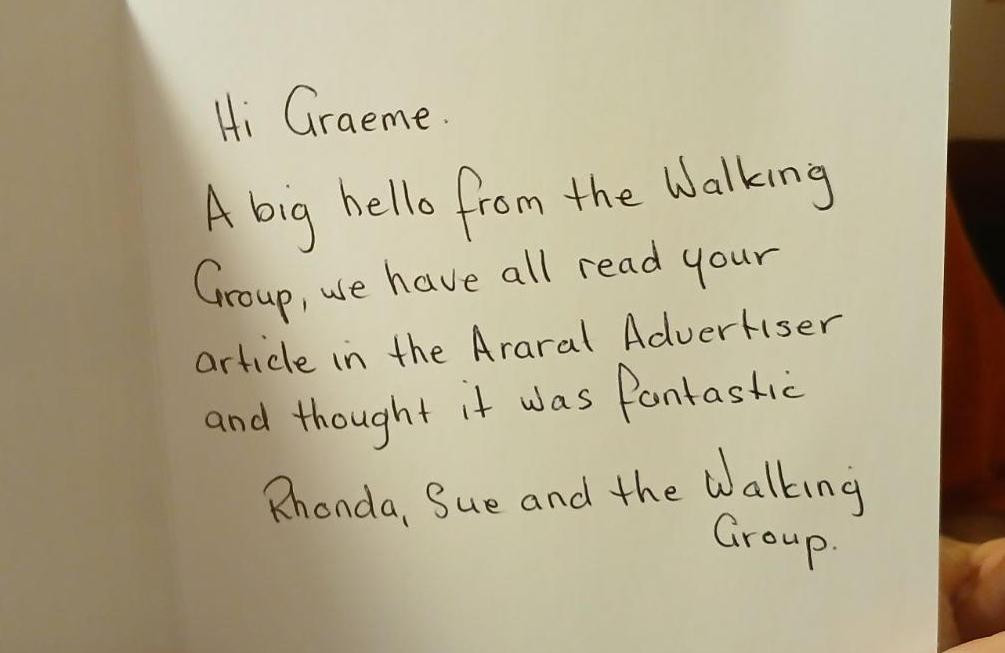 Hi Graeme.
A big hello from the Walking
Group, we have all read your
article in the Ararat Advertiser
and thought it was fantastic
Rhonda, Sue and the Walking
Group.